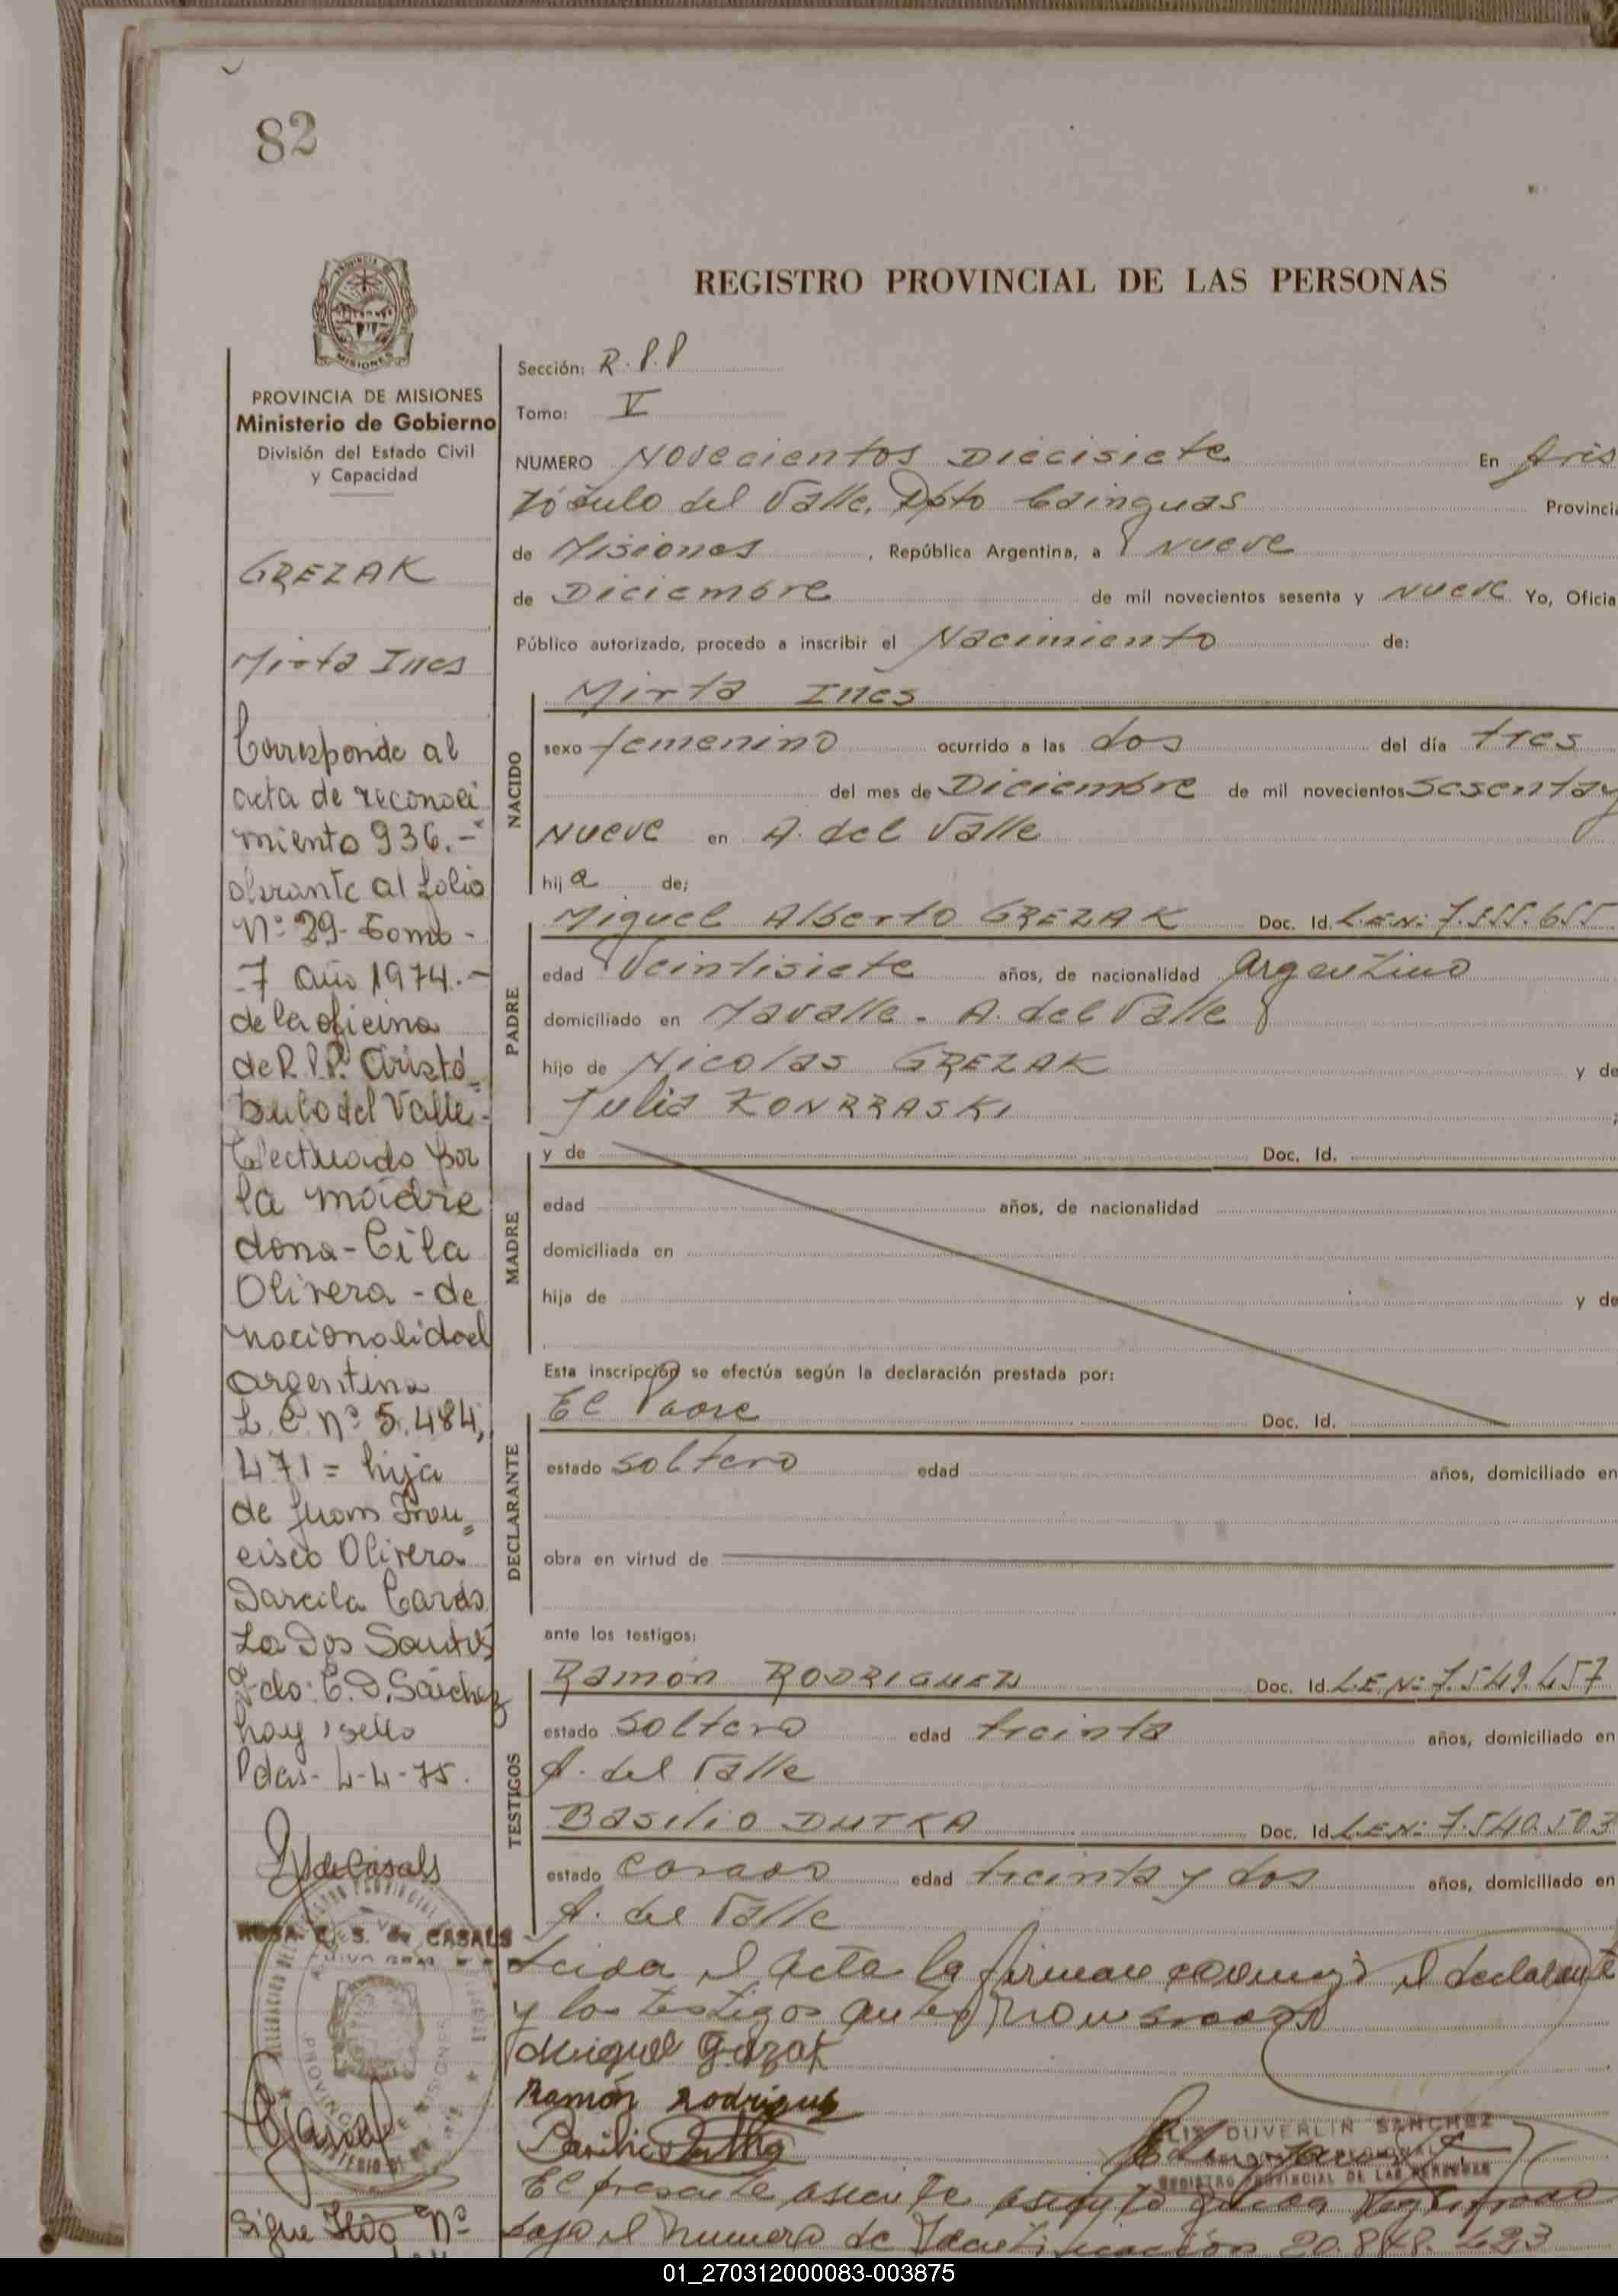 82
REGISTRO PROVINCIAL DE LAS PERSONAS
MISIONES
PROVINCIA DE MISIONES
Ministerio de Gobierno
División del Estado Civil
y Capacidad
GREZAK
Mirta Ines
Corresponde al
acta de reconoci
miento 936.-
obrante al folio
Nº 29- Tomo -
-7 año 1974.-
de la oficina
de R.P.P. Aristó
bulo del Valle-
Efectuado por
la madre
dona-Cila
Olivera - de
nacionalidad
argentina
L.C. nº 5.484,
471 = hija
de Juan Fran
cisco Olivera
Darcila Cardo
Zo Dos Santos
do: E.D. Sánchez
hay 1 sello
Pdas- 4-4-75.
ROSA E. S. de CASALS
Sigue Nº
Sección: R.P.P
Tomo: V
NUMERO Novecientos Diecisiete En Aris
tóbulo del Valle, Dpto Cainguas Provincia
de Misiones , República Argentina, a Nueve
de Diciembre de mil novecientos sesenta y Nueve Yo, Oficia
Público autorizado, procedo a inscribir el Nacimiento de:
NACIDO
Mirta Inés
sexo femenino ocurrido a las dos del día tres
del mes de Diciembre de mil novecientos Sesenta y
Nueve en A. del Valle
hija de;
PADRE
Miguel Alberto GREZAK Doc. Id. L.E.N: 7.555.655
edad Veintisiete años, de nacionalidad Argentino
domiciliado en Lavalle - A. del Valle
hijo de Nicolas GREZAK y de
Julia KONRRASKI
MADRE
y de Doc. Id.
edad años, de nacionalidad
domiciliada en
hija de y de
Esta inscripción se efectúa según la declaración prestada por:
DECLARANTE
El Padre Doc. Id.
estado soltero edad años, domiciliado en
obra en virtud de
ante los testigos:
TESTIGOS
Ramón RODRIGUEZ Doc. Id. L.E.N: 7.549.457
estado soltero edad treinta años, domiciliado en
A. del Valle
Basilio DUTKA Doc. Id. L.E.N: 7.540.503
estado Casado edad treinta y dos años, domiciliado en
A. del Valle
Leida el Acta la firman conmigo el declarante
y los testigos antes
Miguel Grezak
Ramón Rodriguez
Basilio Dutka
DUVERLIN SANCHEZ
REGISTRO PROVINCIAL DE LAS PERSONAS
El presente asiento
bajo el Numero de Identificación 20.848.423
01_270312000083-003875